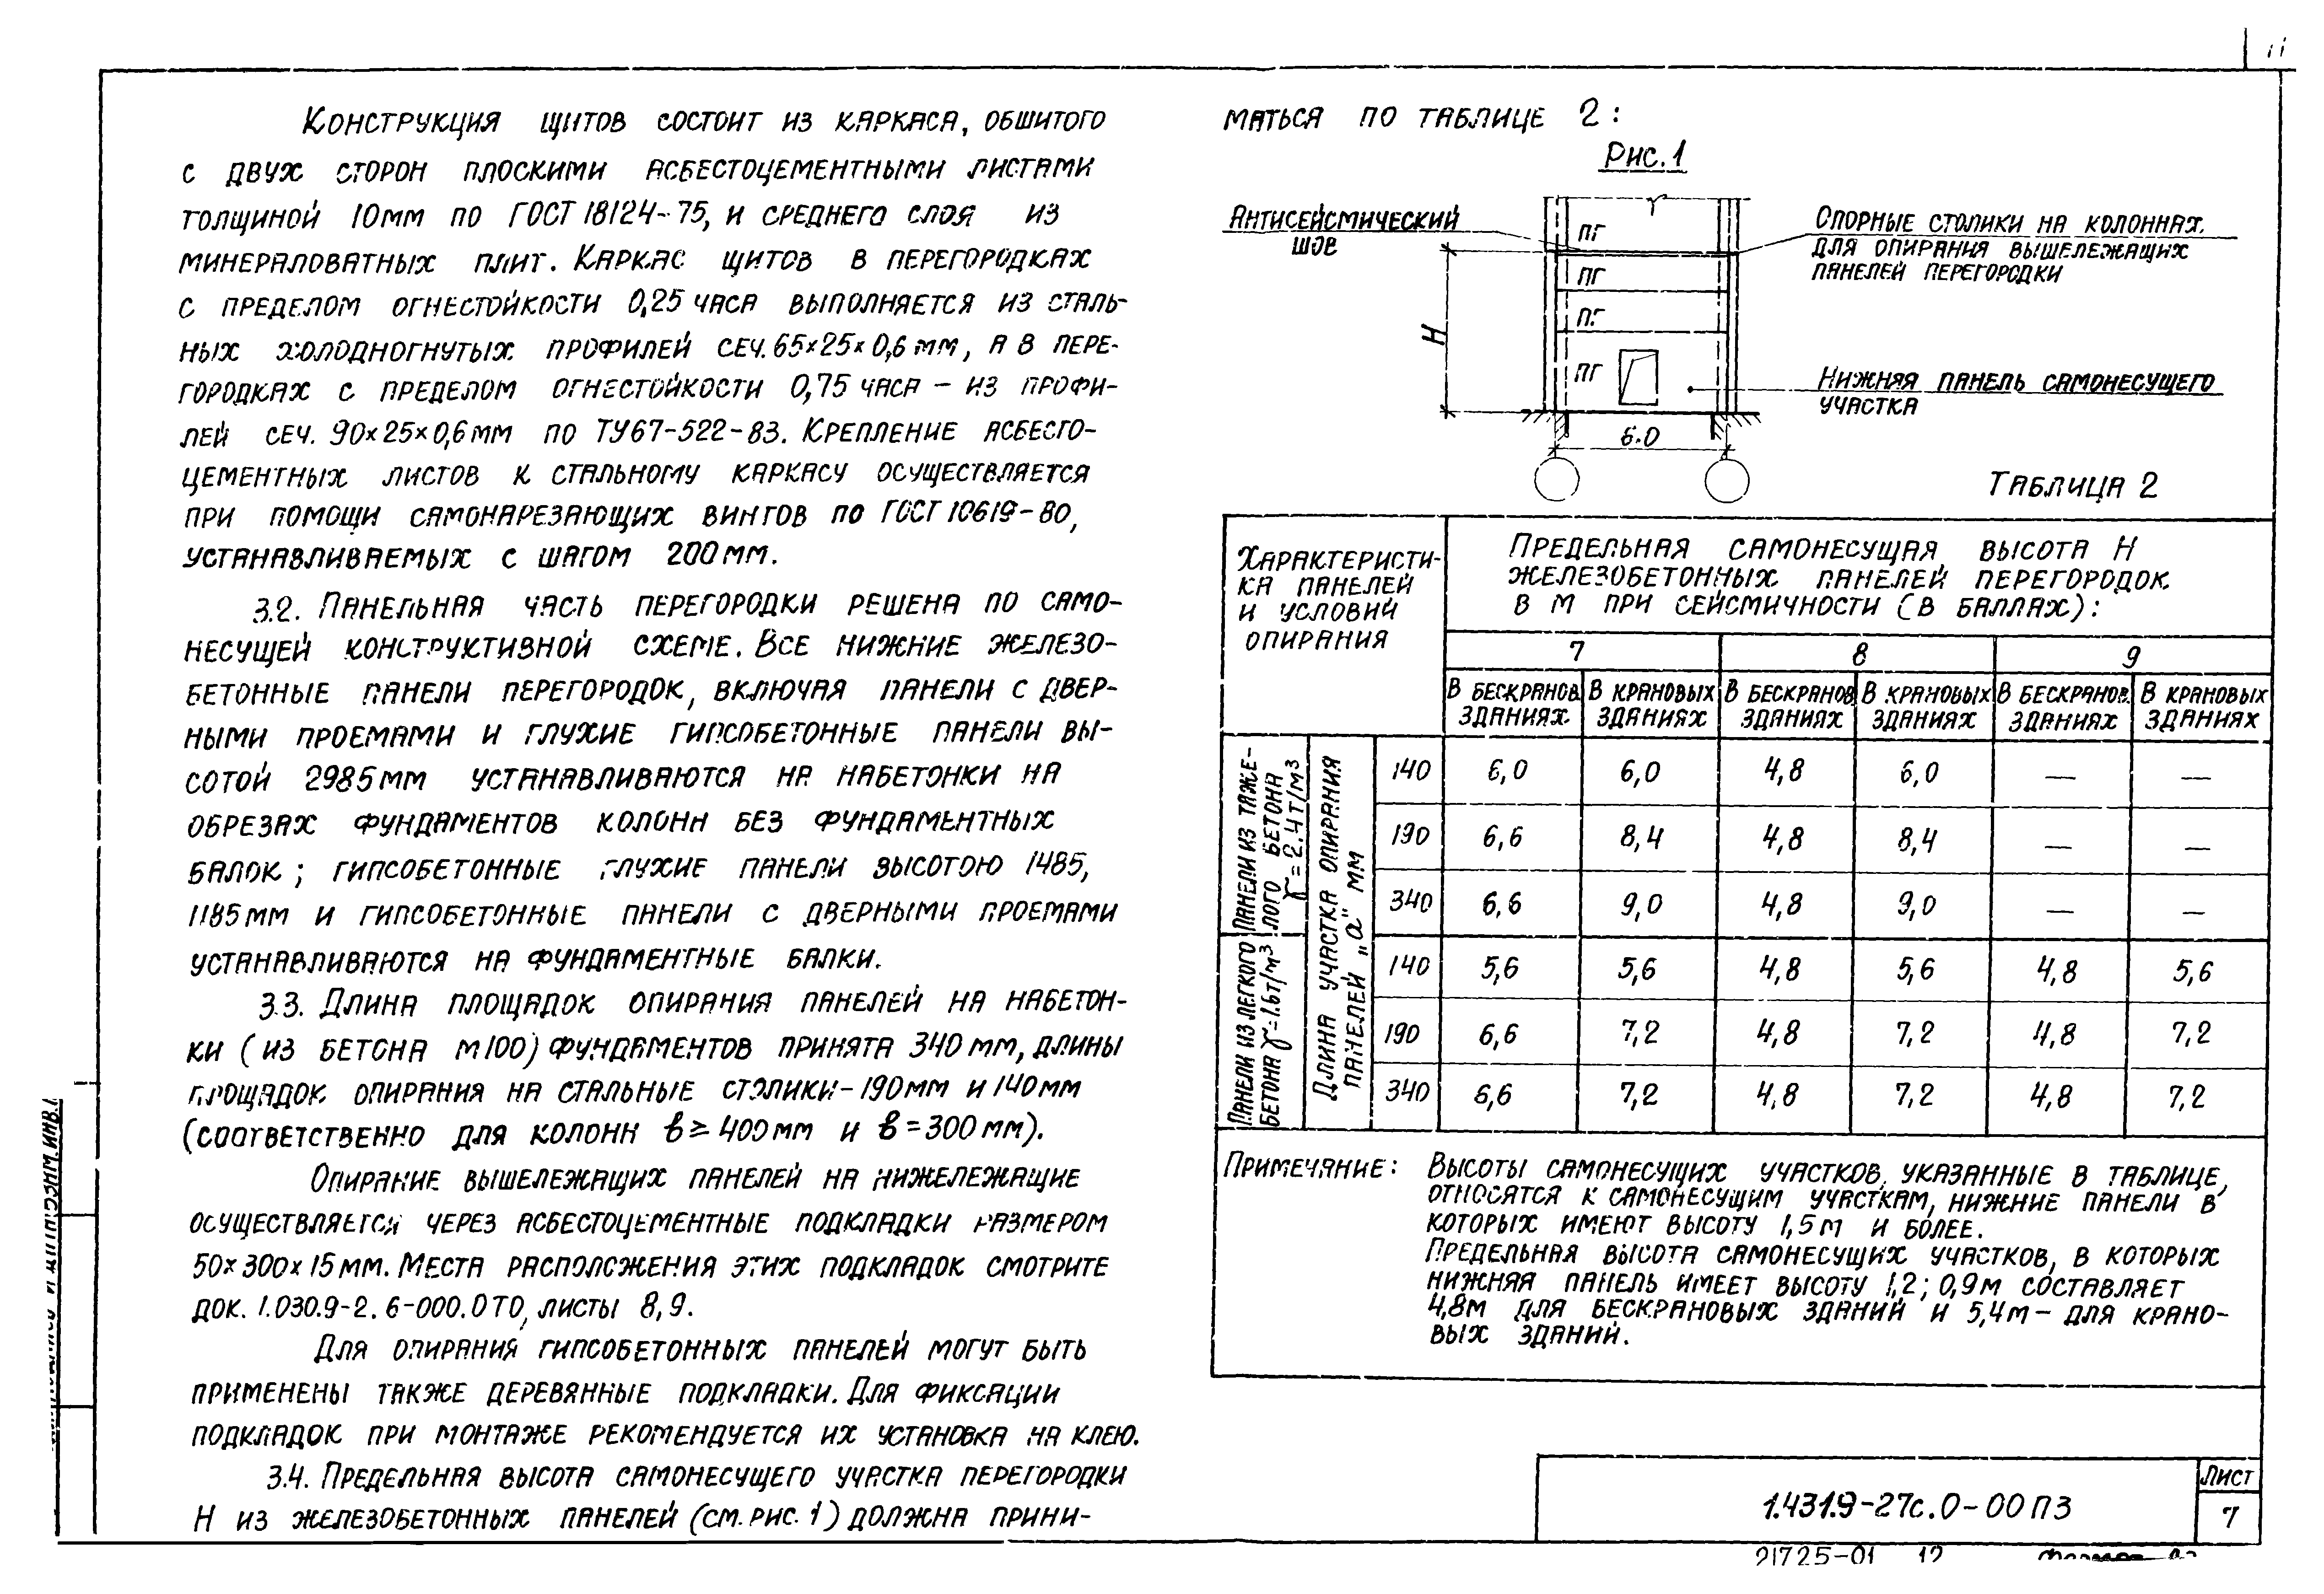 11
Конструкция щитов состоит из каркаса, обшитого
с двух сторон плоскими асбестоцементными листами
толщиной 10мм по ГОСТ 18124-75, и среднего слоя из
минераловатных плит. Каркас щитов в перегородках
с пределом огнестойкости 0,25 часа выполняется из сталь-
ных холодногнутых профилей сеч. 65×25×0,6 мм, а в пере-
городках с пределом огнестойкости 0,75 часа – из профи-
лей сеч. 90×25×0,6мм по ТУ67-522-83. Крепление асбесто-
цементных листов к стальному каркасу осуществляется
при помощи самонарезающих винтов по ГОСТ 10619-80,
устанавливаемых с шагом 200мм.
3.2. Панельная часть перегородки решена по само-
несущей конструктивной схеме. Все нижние железо-
бетонные панели перегородок, включая панели с двер-
ными проемами и глухие гипсобетонные панели вы-
сотой 2985мм устанавливаются на набетонки на
обрезах фундаментов колонн без фундаментных
балок; гипсобетонные глухие панели высотою 1485,
1185мм и гипсобетонные панели с дверными проемами
устанавливаются на фундаментные балки.
3.3. Длина площадок опирания панелей на набетон-
ки (из бетона М100) фундаментов принята 340мм, длины
площадок опирания на стальные столики – 190мм и 140мм
(соответственно для колонн в ≥ 400мм и в = 300мм).
Опирание вышележащих панелей на нижележащие
осуществляется через асбестоцементные подкладки размером
50×300×15мм. Места расположения этих подкладок смотрите
док. 1.030.9-2. 6-000.0 ТО, листы 8,9.
Для опирания гипсобетонных панелей могут быть
применены также деревянные подкладки. Для фиксации
подкладок при монтаже рекомендуется их установка на клею.
3.4. Предельная высота самонесущего участка перегородки
Н из железобетонных панелей (см. рис. 1) должна прини-
маться по таблице 2:
Рис. 1
Антисейсмический
шов
Опорные столики на колоннах
для опирания вышележащих
панелей перегородки
ПГ
ПГ
ПГ
ПГ
Н
Нижняя панель самонесущего
участка
6.0
Таблица 2
Характеристи-
ка панелей
и условий
опирания
Предельная самонесущая высота Н
железобетонных панелей перегородок
в м при сейсмичности (в баллах):
7 8 9
В бескранов. зданиях В крановых зданиях В бескранов. зданиях В крановых зданиях В бескранов. зданиях В крановых зданиях
Панели из тяже-
лого бетона
γ = 2.4т/м³
Длина участка опирания
панелей „а" мм
140 6,0 6,0 4,8 6,0 — —
190 6,6 8,4 4,8 8,4 — —
340 6,6 9,0 4,8 9,0 — —
Панели из легкого
бетона γ=1.6т/м³
140 5,6 5,6 4,8 5,6 4,8 5,6
190 6,6 7,2 4,8 7,2 4,8 7,2
340 6,6 7,2 4,8 7,2 4,8 7,2
Примечание: Высоты самонесущих участков, указанные в таблице,
относятся к самонесущим участкам, нижние панели в
которых имеют высоту 1,5м и более.
Предельная высота самонесущих участков, в которых
нижняя панель имеет высоту 1,2; 0,9м составляет
4,8м для бескрановых зданий и 5,4м – для крано-
вых зданий.
1.431.9-27с.0-00ПЗ
Лист
7
21725-01 12